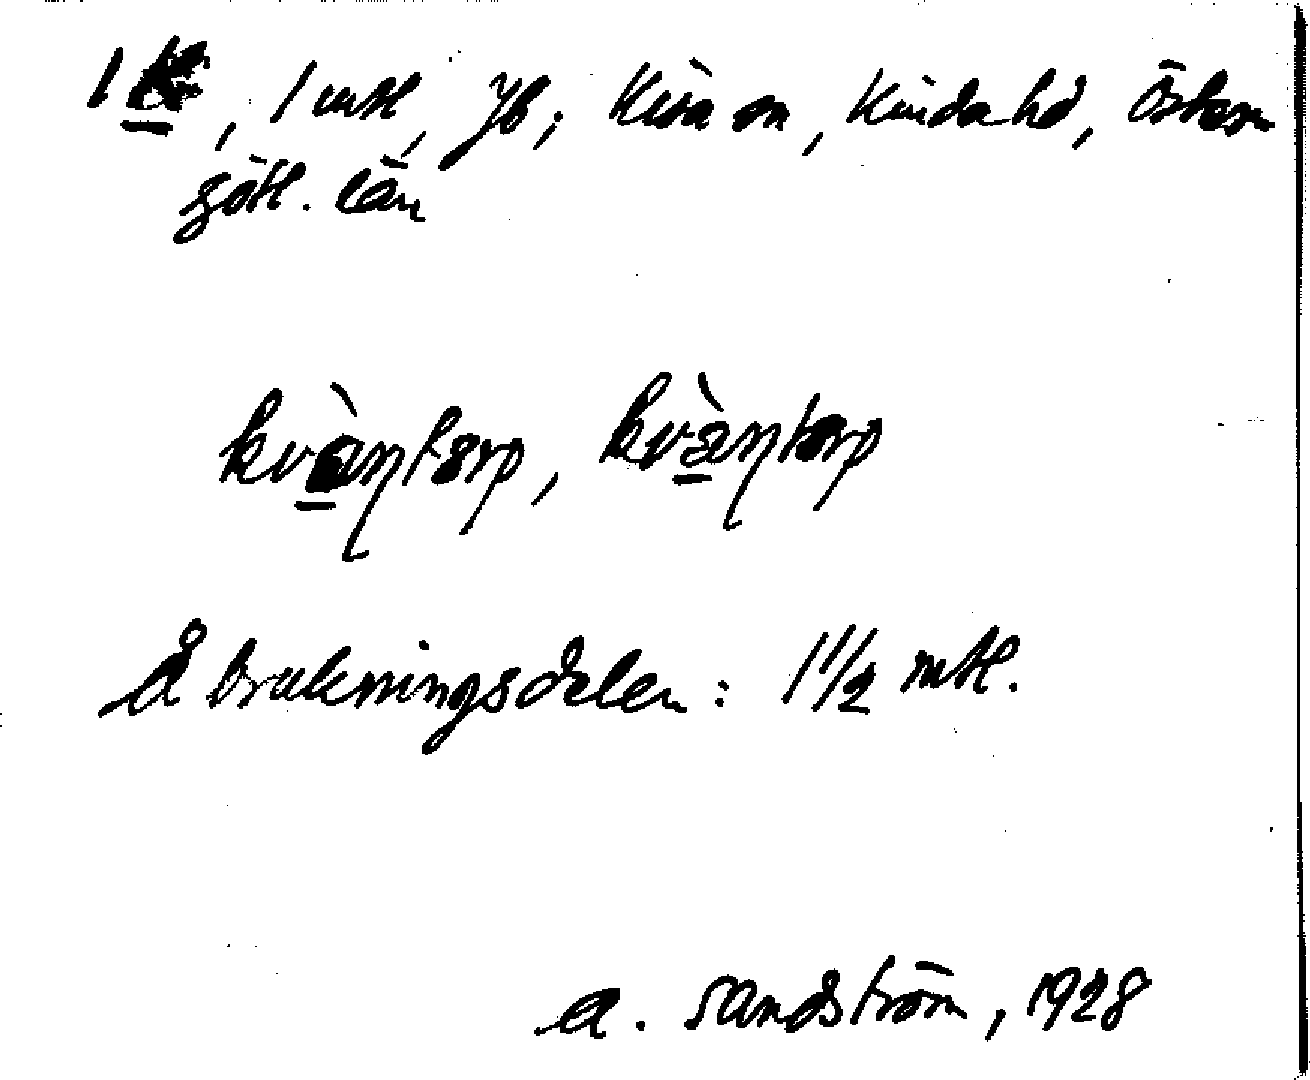 1 , 1 mtl, Jb; Kisa sn, Kinda hd, Öster
götl. län
kvàntorp, kvæ̀ntorp
Å brukningsdelen: 1 1/2 mtl.
A. Sandström, 1928